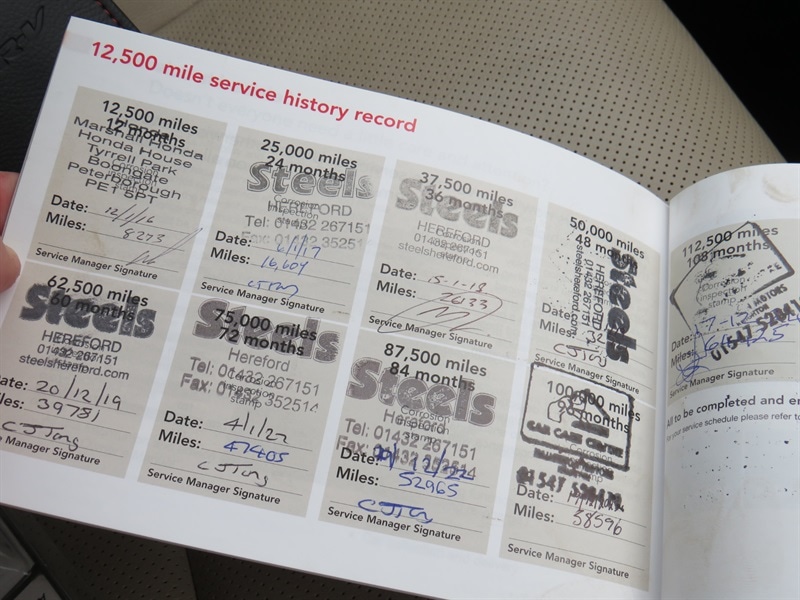 12,500 mile service history record
12,500 miles
12 months
Marshall Honda
Honda House
Tyrrell Park
Boongate
Peterborough
PE1 5PT
Date: 12/1/16
Miles: 8273
Service Manager Signature
25,000 miles
24 months
Steels
Corrosion
inspection
stamp
HEREFORD
Tel: 01432 267151
Fax: 01432 352514
Date: 6/1/17
Miles: 16,604
CJTong
Service Manager Signature
37,500 miles
36 months
Steels
Corrosion
inspection
HEREFORD
01432 267151
steelshereford.com
Date: 15-1-18
Miles: 26133
Service Manager Signature
50,000 miles
48 months
Steels
HEREFORD
01432 267151
steelshereford.com
Date:
Miles: 32
CJTong
Service Manager Signature
62,500 miles
60 months
Steels
HEREFORD
01432 267151
steelshereford.com
Date: 20/12/19
Miles: 39781
CJTong
Service Manager Signature
75,000 miles
72 months
Steels
Hereford
Corrosion
inspection
stamp
Tel: 01432 267151
Fax: 01432 352514
Date: 4/1/22
Miles: 47405
CJTong
Service Manager Signature
87,500 miles
84 months
Steels
Corrosion
Hereford
Tel: 01432 267151
Fax: 01432 352514
Date: 12/22
Miles: 52965
CJTong
Service Manager Signature
100,000 miles
96 months
01547 528470
Date:
Miles: 58596
Service Manager Signature
112,500 miles
108 months
Corrosion
inspection
stamp
MOTORS
Date: 17.12
01547 528470
Miles:
Service Manager Signature
All to be completed and en
For your service schedule please refer to